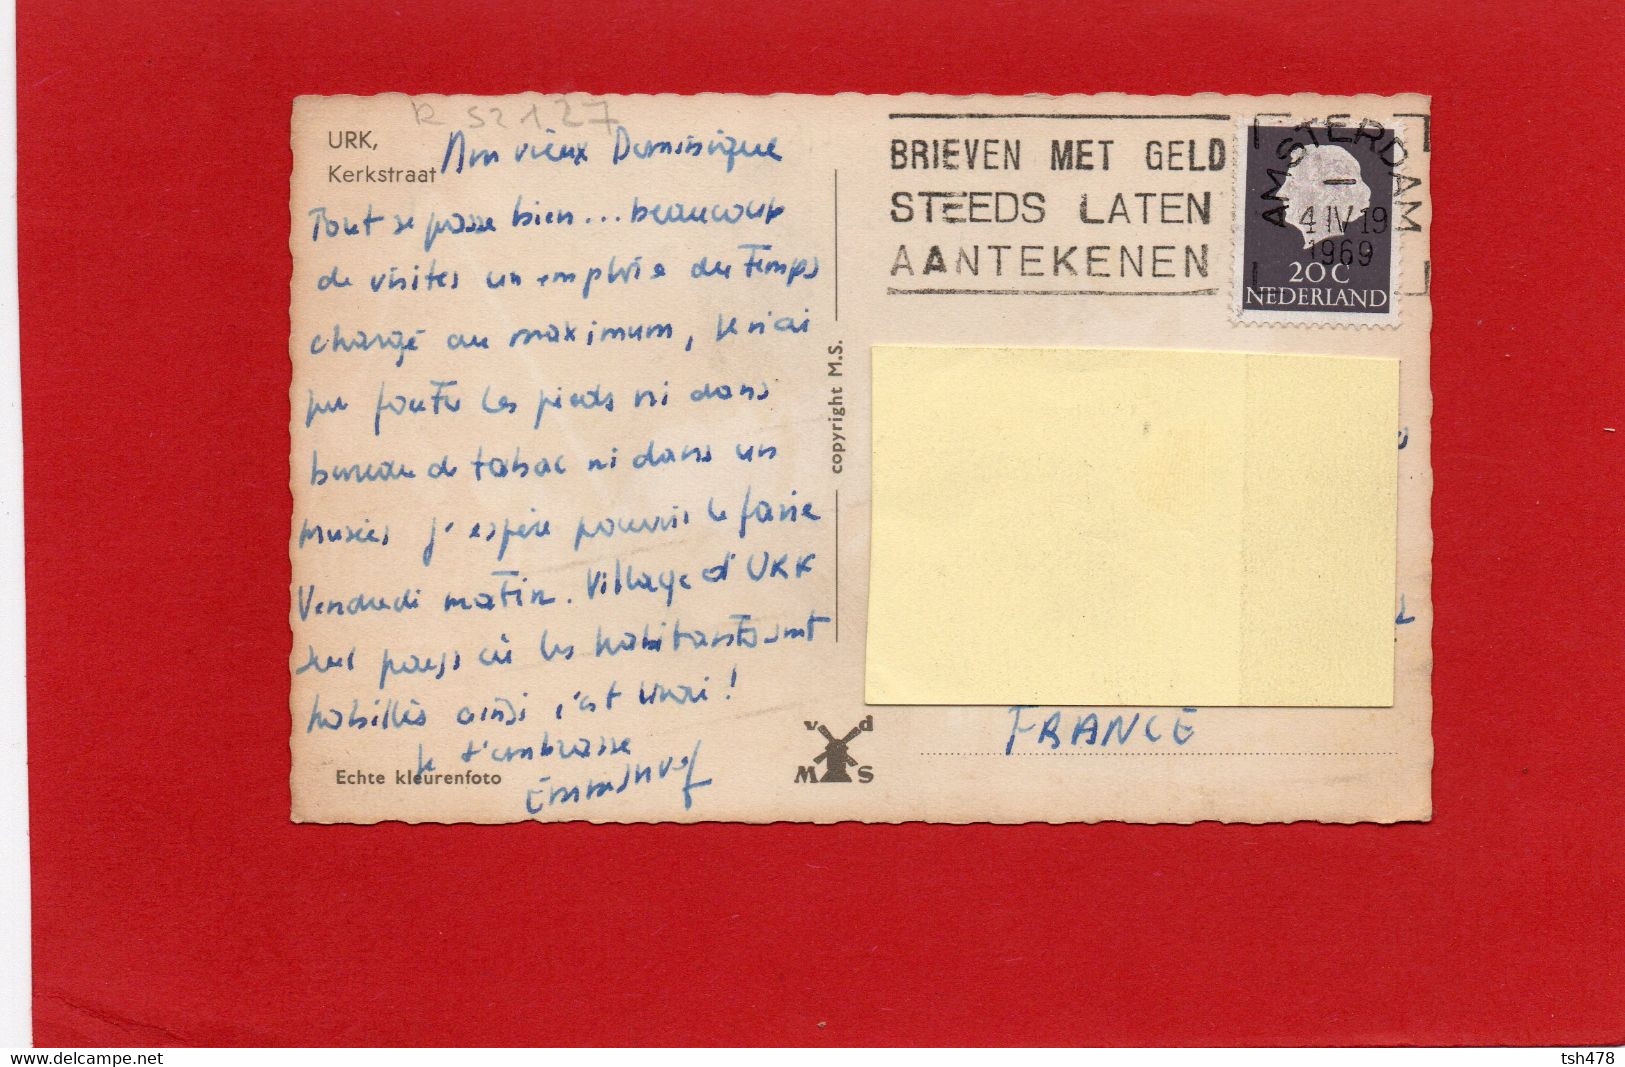 R 52127
URK,
Kerkstraat
Mon vieux Dominique
Tout se passe bien... beaucoup
de visites un emploi du Temps
chargé au maximum, je n'ai
pu foutre les pieds ni dans
bureau de tabac ni dans un
musées j'espère pouvoir le faire
Vendredi matin. Village d'URK
seul pays où les habitants sont
habillés ainsi c'est vrai !
Je t'embrasse
Emmanuel
Echte kleurenfoto
copyright M.S.
v d
M S
BRIEVEN MET GELD
STEEDS LATEN
AANTEKENEN
AMSTERDAM
4 IV 19
1969
20 C
NEDERLAND
FRANCE
www.delcampe.net
tsh478